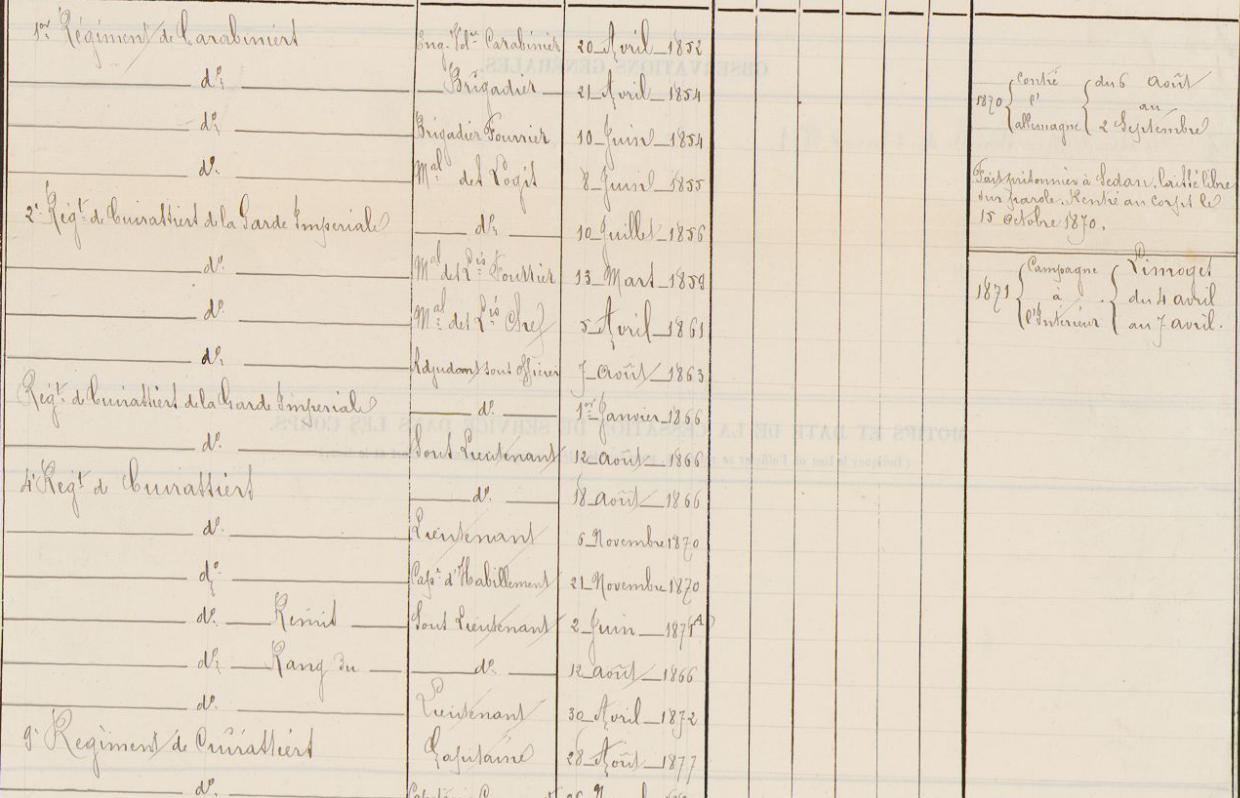 1er Régiment de Carabiniers Eng. Vol.re Carabinier 20 Avril 1852
do Brigadier 21 Avril 1854
do Brigadier Fourrier 10 Juin 1854
do Mal des Logis 8 Juin 1855
2e Régt. de Cuirassiers de la Garde Impériale do 10 Juillet 1856
do Mal des Lgis Fourrier 13 Mars 1859
do Mal des Lgis Chef 5 Avril 1861
do Adjudant sous officier 7 Août 1863
Régt. de Cuirassiers de la Garde Impériale do 1er Janvier 1866
do Sous Lieutenant 12 Août 1866
4e Régt. de Cuirassiers do 18 Août 1866
do Lieutenant 6 Novembre 1870
do Capne d'Habillement 21 Novembre 1870
do Remis Sous Lieutenant 2 Juin 1871
do Rang du do 12 Août 1866
do Lieutenant 30 Avril 1872
9e Régiment de Cuirassiers Capitaine 28 Août 1877
do
1870 Contre l'allemagne du 6 Août
au
2 Septembre
Fait prisonnier à Sedan. laissé libre
sur parole. Rentré au corps le
15 Octobre 1870.
1871 Campagne à l'Intérieur Limoges
du 4 avril
au 7 avril.
OBSERVATIONS GÉNÉRALES.
MOTIFS ET DATE DE LA CESSATION DE SERVICE DANS LES CORPS.